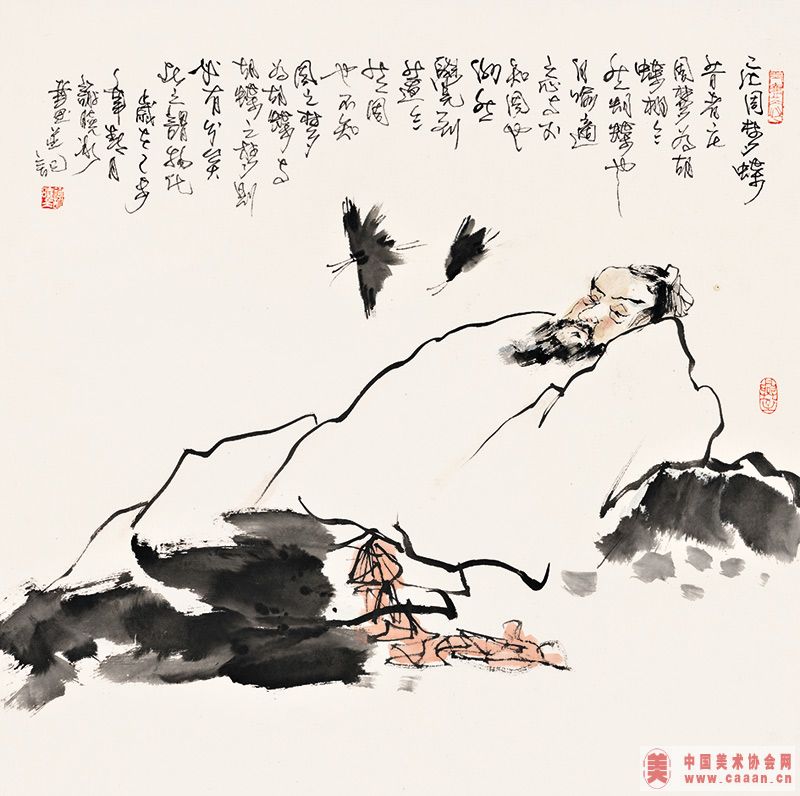 庄周梦蝶
昔者庄
周梦为胡
蝶栩々
然胡蝶也
自喻适
志与不
知周也
俄然
觉则
蘧々
然周
也不知
周之梦
为胡蝶与
胡蝶之梦则
必有分矣
此之謂物化
岁在乙未
年 月
并记
中国美术协会网
www.caaan.cn
美